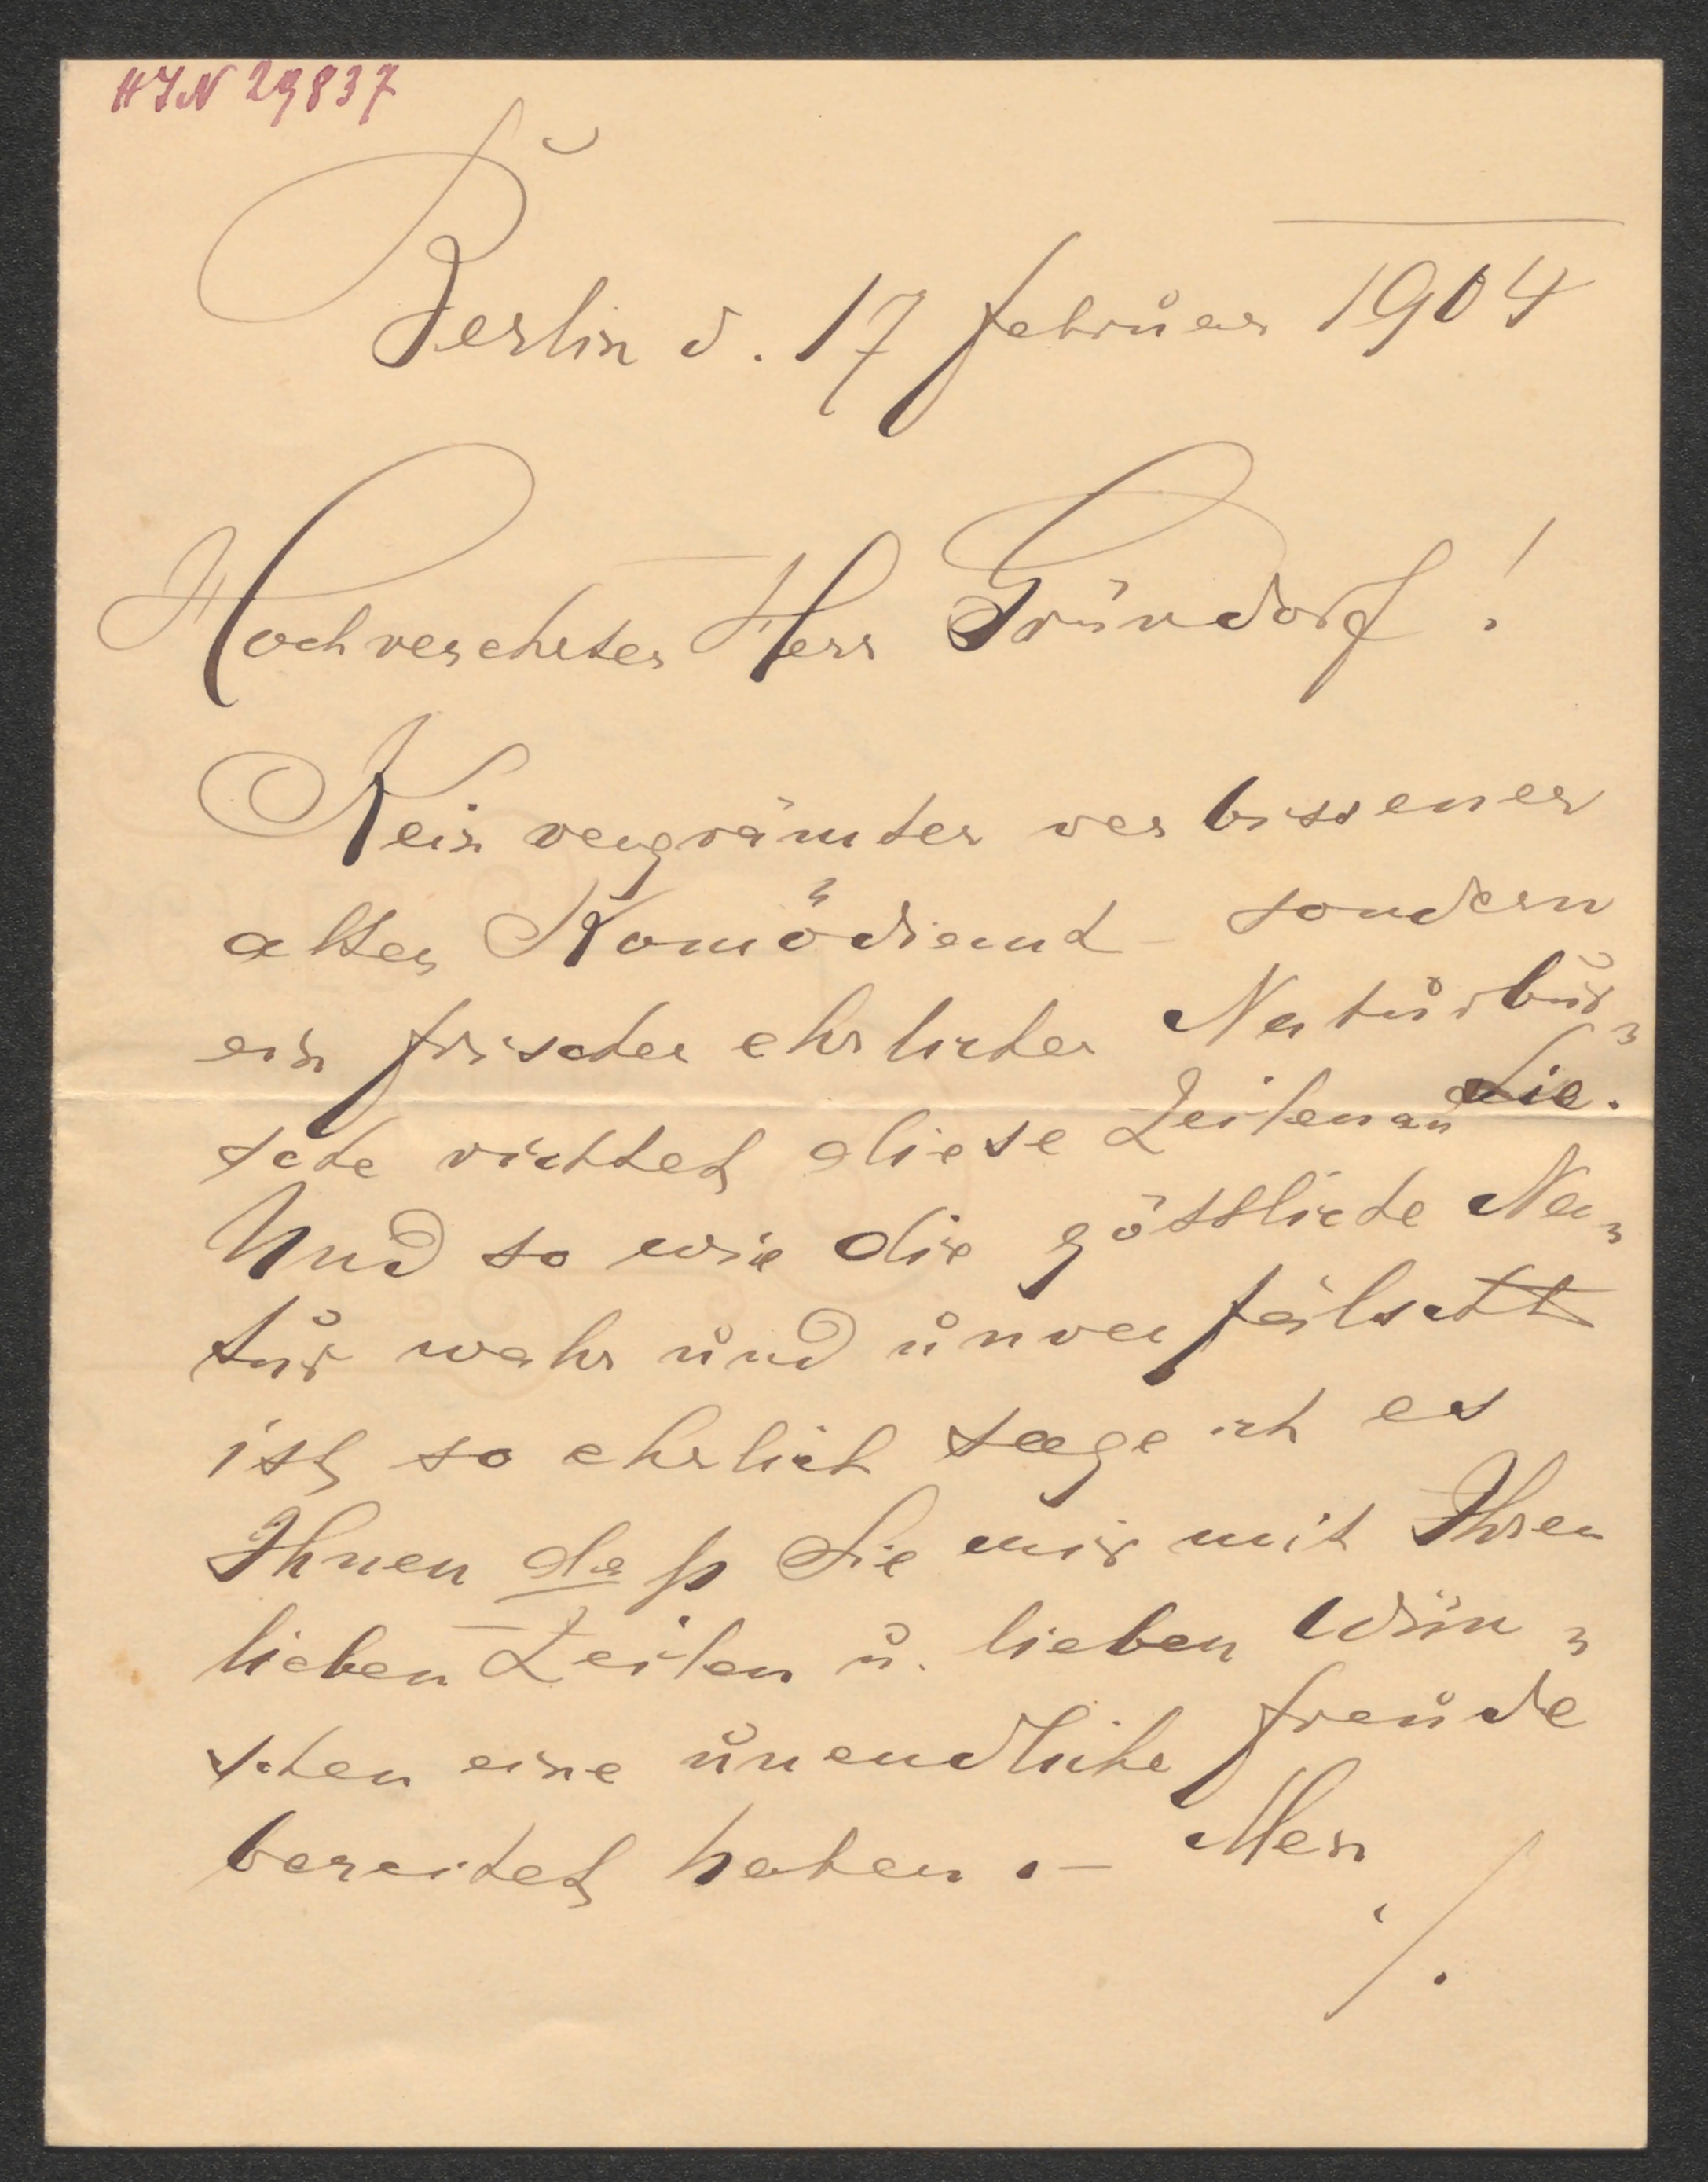 HIN 29837
Berlin d. 17 Februar 1904
Hochverehrter Herr Gründorf!
Kein vergrämter verbissener
alter Komödiant - sondern
ein frischer ehrlicher Naturbur=
sche richtet diese Zeilen an Sie.
Und so wie die göttliche Na=
tur wahr und unverfälscht
ist, so ehrlich sage ich es
Ihnen daß Sie mir mit Ihren
lieben Zeilen u. lieben Wün=
schen eine unendliche Freude
bereitet haben. - Men
./.